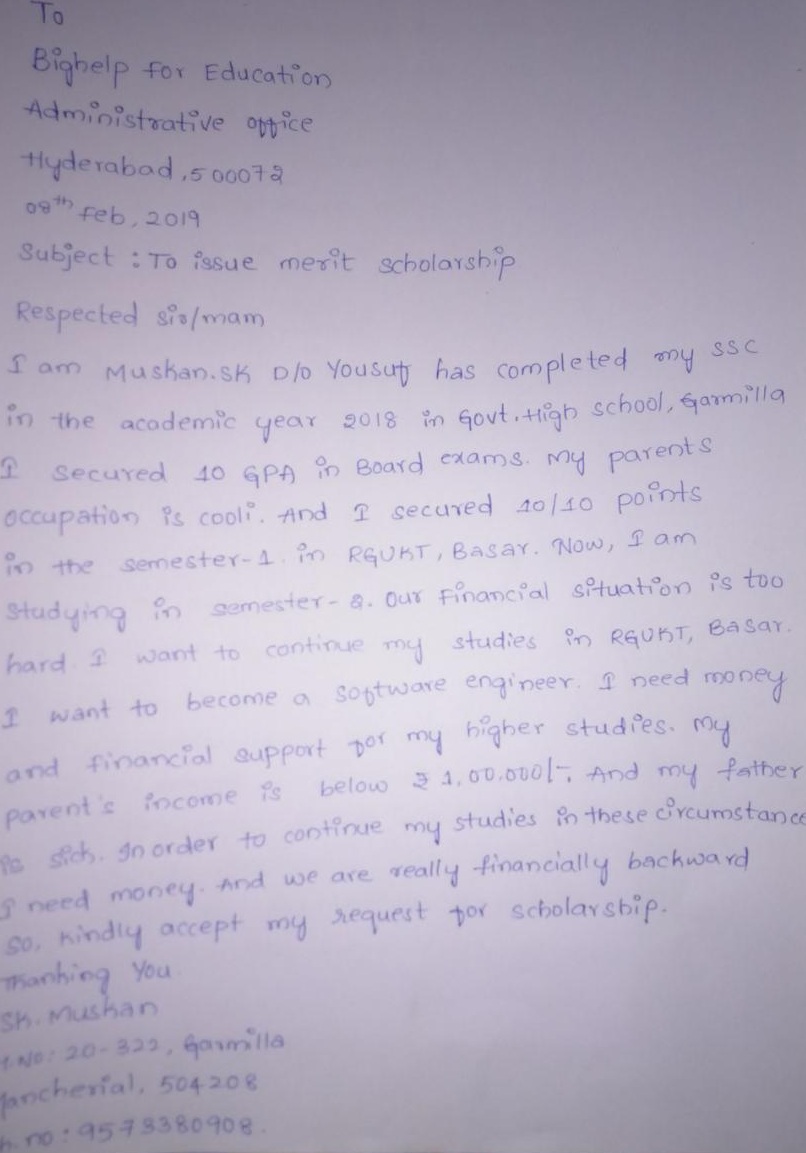 To
Bighelp for Education
Administrative office
Hyderabad, 500072
08th Feb, 2019
Subject : To issue merit scholarship
Respected sir/mam
I am Muskan.SK D/o Yousuf has completed my SSC
in the academic year 2018 in Govt. High school, Garmilla
I secured 10 GPA in Board exams. My parents
occupation is cooli. And I secured 10/10 points
in the semester-1. in RGUKT, Basar. Now, I am
studying in semester-2. our Financial situation is too
hard I want to continue my studies in RGUKT, Basar.
I want to become a software engineer. I need money
and financial support for my higher studies. My
parent's income is below ₹ 1,00,000/-, And my father
is sick. In order to continue my studies in these circumstance
I need money. And we are really financially backward
so, kindly accept my request for scholarship.
Thanking You
SK. Muskan
No: 20-322, Garmilla
Mancherial, 504208
no : 9573380908.